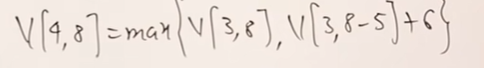 V[4,8]=max{V[3,8], V[3,8-5]+6}